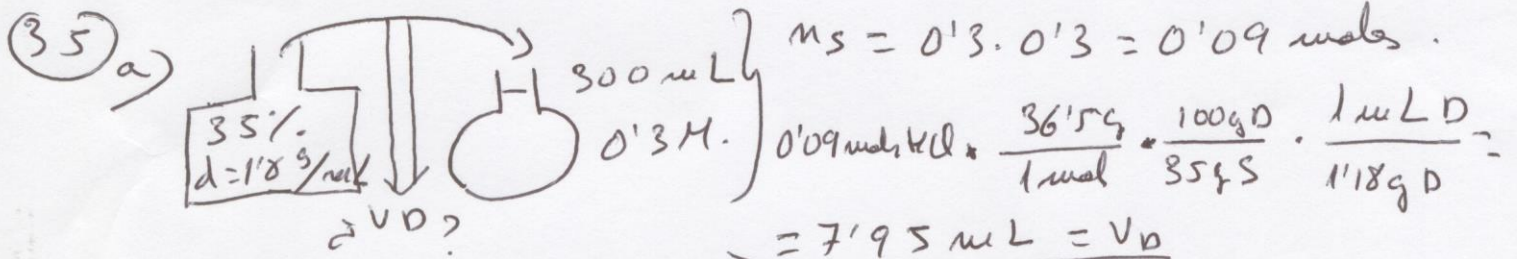 35 a)
35%
d=1'18 g/mL
¿VD?
300 mL
0'3 M.
ns = 0'3 · 0'3 = 0'09 moles.
0'09 mols HCl · 36'5 g / 1 mol · 100 g D / 35 g S · 1 mL D / 1'18 g D =
= 7'95 mL = VD